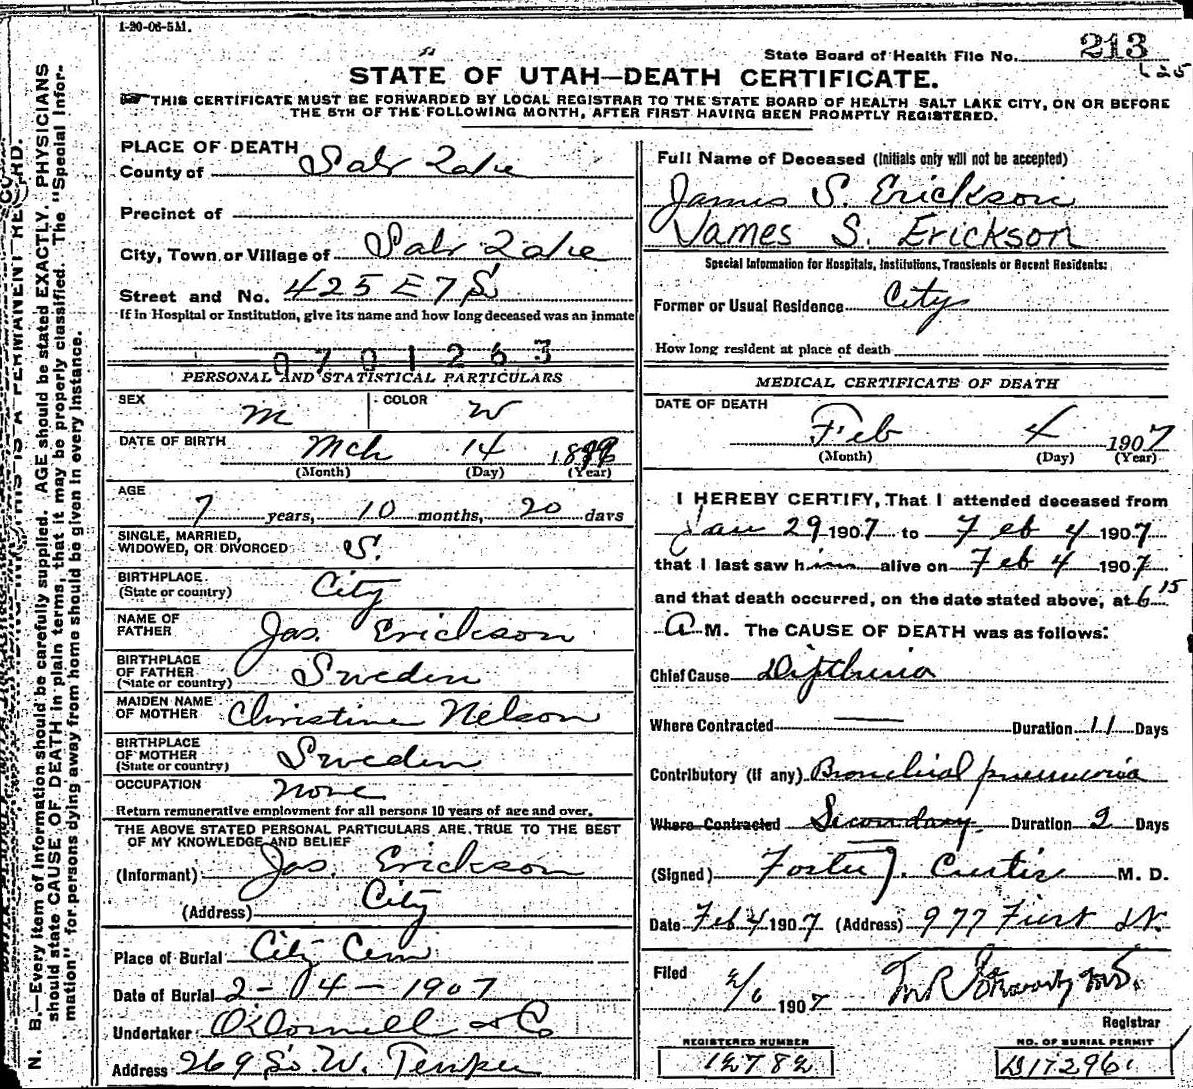 1-20-06-5M.
State Board of Health File No. 213
STATE OF UTAH—DEATH CERTIFICATE.
THIS CERTIFICATE MUST BE FORWARDED BY LOCAL REGISTRAR TO THE STATE BOARD OF HEALTH SALT LAKE CITY, ON OR BEFORE
THE 5TH OF THE FOLLOWING MONTH, AFTER FIRST HAVING BEEN PROMPTLY REGISTERED.
PLACE OF DEATH
County of Salt Lake
Precinct of
City, Town or Village of Salt Lake
Street and No. 425 E 7 S
If in Hospital or Institution, give its name and how long deceased was an inmate
0701263
PERSONAL AND STATISTICAL PARTICULARS
SEX M COLOR W
DATE OF BIRTH Mch 14
(Month) (Day) (Year)
AGE
7 years, 10 months, 20 days
SINGLE, MARRIED,
WIDOWED, OR DIVORCED S.
BIRTHPLACE
(State or country) City
NAME OF
FATHER Jas. Erickson
BIRTHPLACE
OF FATHER
(State or country) Sweden
MAIDEN NAME
OF MOTHER Christine Nelson
BIRTHPLACE
OF MOTHER
(State or country) Sweden
OCCUPATION none
Return remunerative employment for all persons 10 years of age and over.
THE ABOVE STATED PERSONAL PARTICULARS ARE TRUE TO THE BEST
OF MY KNOWLEDGE AND BELIEF
(Informant) Jas. Erickson
(Address) City
Place of Burial City Cem
Date of Burial 2-04-1907
Undertaker O'Donnell & Co
Address 269 So. W. Temple
Full Name of Deceased (Initials only will not be accepted)
James S. Erickson
James S. Erickson
Special Information for Hospitals, Institutions, Transients or Recent Residents:
Former or Usual Residence City
How long resident at place of death
MEDICAL CERTIFICATE OF DEATH
DATE OF DEATH
Feb 4 1907
(Month) (Day) (Year)
I HEREBY CERTIFY, That I attended deceased from
Jan 29 1907 to Feb 4 1907
that I last saw him alive on Feb 4 1907
and that death occurred, on the date stated above, at 6 15
A M. The CAUSE OF DEATH was as follows:
Chief Cause Diptheria
Where Contracted — Duration 11 Days
Contributory (if any) Bronchial pneumonia
Where Contracted Secondary Duration 2 Days
(Signed) Foster J. Curtis M. D.
Date Feb 4 1907 (Address) 977 First St.
Filed 2/6 1907
Registrar
REGISTERED NUMBER
12782
NO. OF BURIAL PERMIT
N. B.—Every item of information should be carefully supplied. AGE should be stated EXACTLY. PHYSICIANS
should state CAUSE OF DEATH in plain terms, that it may be properly classified. The "Special Infor-
mation" for persons dying away from home should be given in every instance.